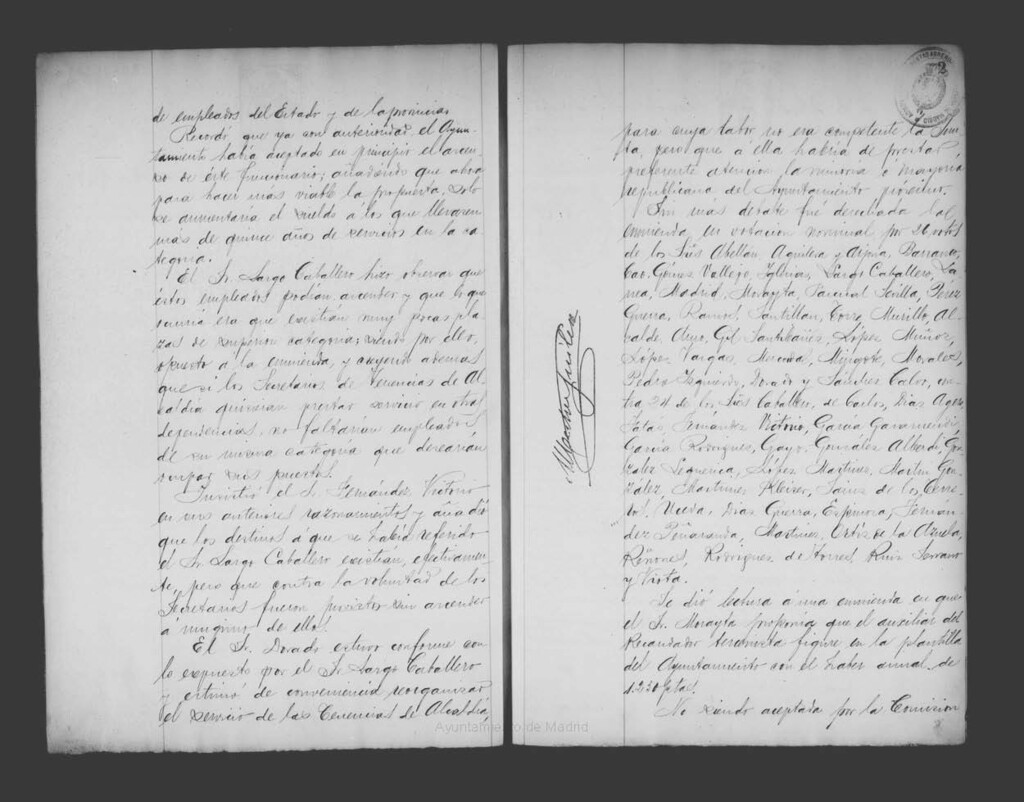 de empleados del Estado y de la provincia.
Recordó que ya con anterioridad el Ayun-
tamiento había aceptado en principio el ascen-
so de éste funcionario; añadiendo que ahora
para hacer más viable la propuesta, solo
se aumentaría el sueldo a los que llevaren
más de quince años de servicios en la ca-
tegoría.
El Sr. Largo Caballero hizo observar que
éstos empleados podían ascender y que lo que
era que existían muy pocas pla-
zas de superior categoría; siendo por ello,
opuesto a la enmienda, y creyendo además
que si los Secretarios de Tenencias de Al-
caldía quisieran prestar servicio en otras
dependencias, no faltarían empleados
de su misma categoría que desearían
ocupar sus puestos.
Insistió el Sr. Fernández Victorio
en sus anteriores razonamientos y añadió
que los destinos a que se había referido
el Sr. Largo Caballero existían, efectivamen-
te, pero que contra la voluntad de los
Secretarios fueron provistos sin ascender
á ninguno de ellos.
El Sr. Dorado estuvo conforme con
lo expuesto por el Sr. Largo Caballero
y estimó de conveniencia reorganizar
el servicio de las Tenencias de Alcaldía,
para cuya labor no era competente la Jun-
ta, pero que á ella habría de prestar
preferente atención la minoría ó mayoría
republicana del Ayuntamiento próximo.
Sin más debate fué desechada la
enmienda, en votación nominal, por 26 votos
de los Sres. Abellán, Aguilera y Arjona, Barranco,
Cao, Gómez Vallejo, Iglesias, Largo Caballero, La
, Madrid, Morayta, Pascual Sevilla, Pérez
Guerra, Ramos, Santillán, Murillo, Al-
calde, Ayo, Gil, Santibáñez, López Muñoz,
López Vargas, Miranda, Morales,
Pedro Izquierdo, Dorado y Sánchez Calvo, con-
tra 24 de los Sres. Caballero, de Carlos, Díaz Agero,
Fernández Victorio, García Garamendi,
García Rodríguez, Gayo, González Alberdi, Gon-
zález Lequerica, López Martínez, Martín Gon-
zález, Martínez Kleiser, Sáinz de los Terre-
ros, Díaz Guerra, Espinosa, Fernán-
dez Peñaranda, Martínez, Ortiz de la Azuela,
Reñones, Rodríguez de Ruiz Serrano
y Vista.
Se dió lectura á una enmienda en que
el Sr. Morayta proponía que el auxiliar del
Recaudador figure en la plantilla
del Ayuntamiento con el haber anual de
1.250 ptas.
No siendo aceptada por la Comisión
Ayuntamiento de Madrid